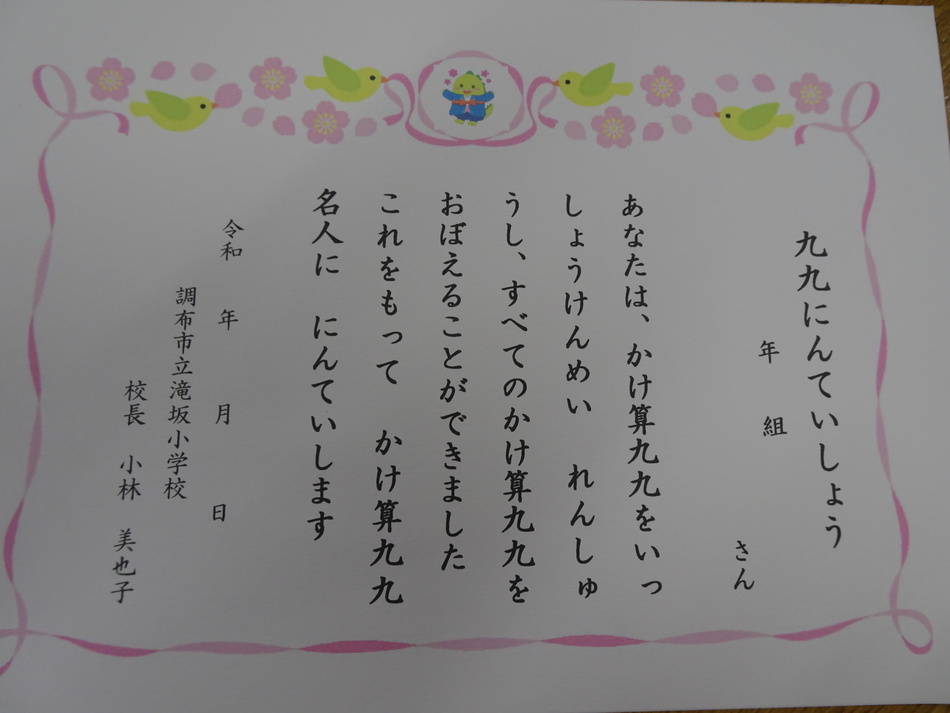 九九にんていしょう
年 組
さん
あなたは、かけ算九九をいっ
しょうけんめい れんしゅ
うし、すべてのかけ算九九を
おぼえることができました
これをもって かけ算九九
名人に にんていします
令和 年 月 日
調布市立滝坂小学校
校長 小林 美也子